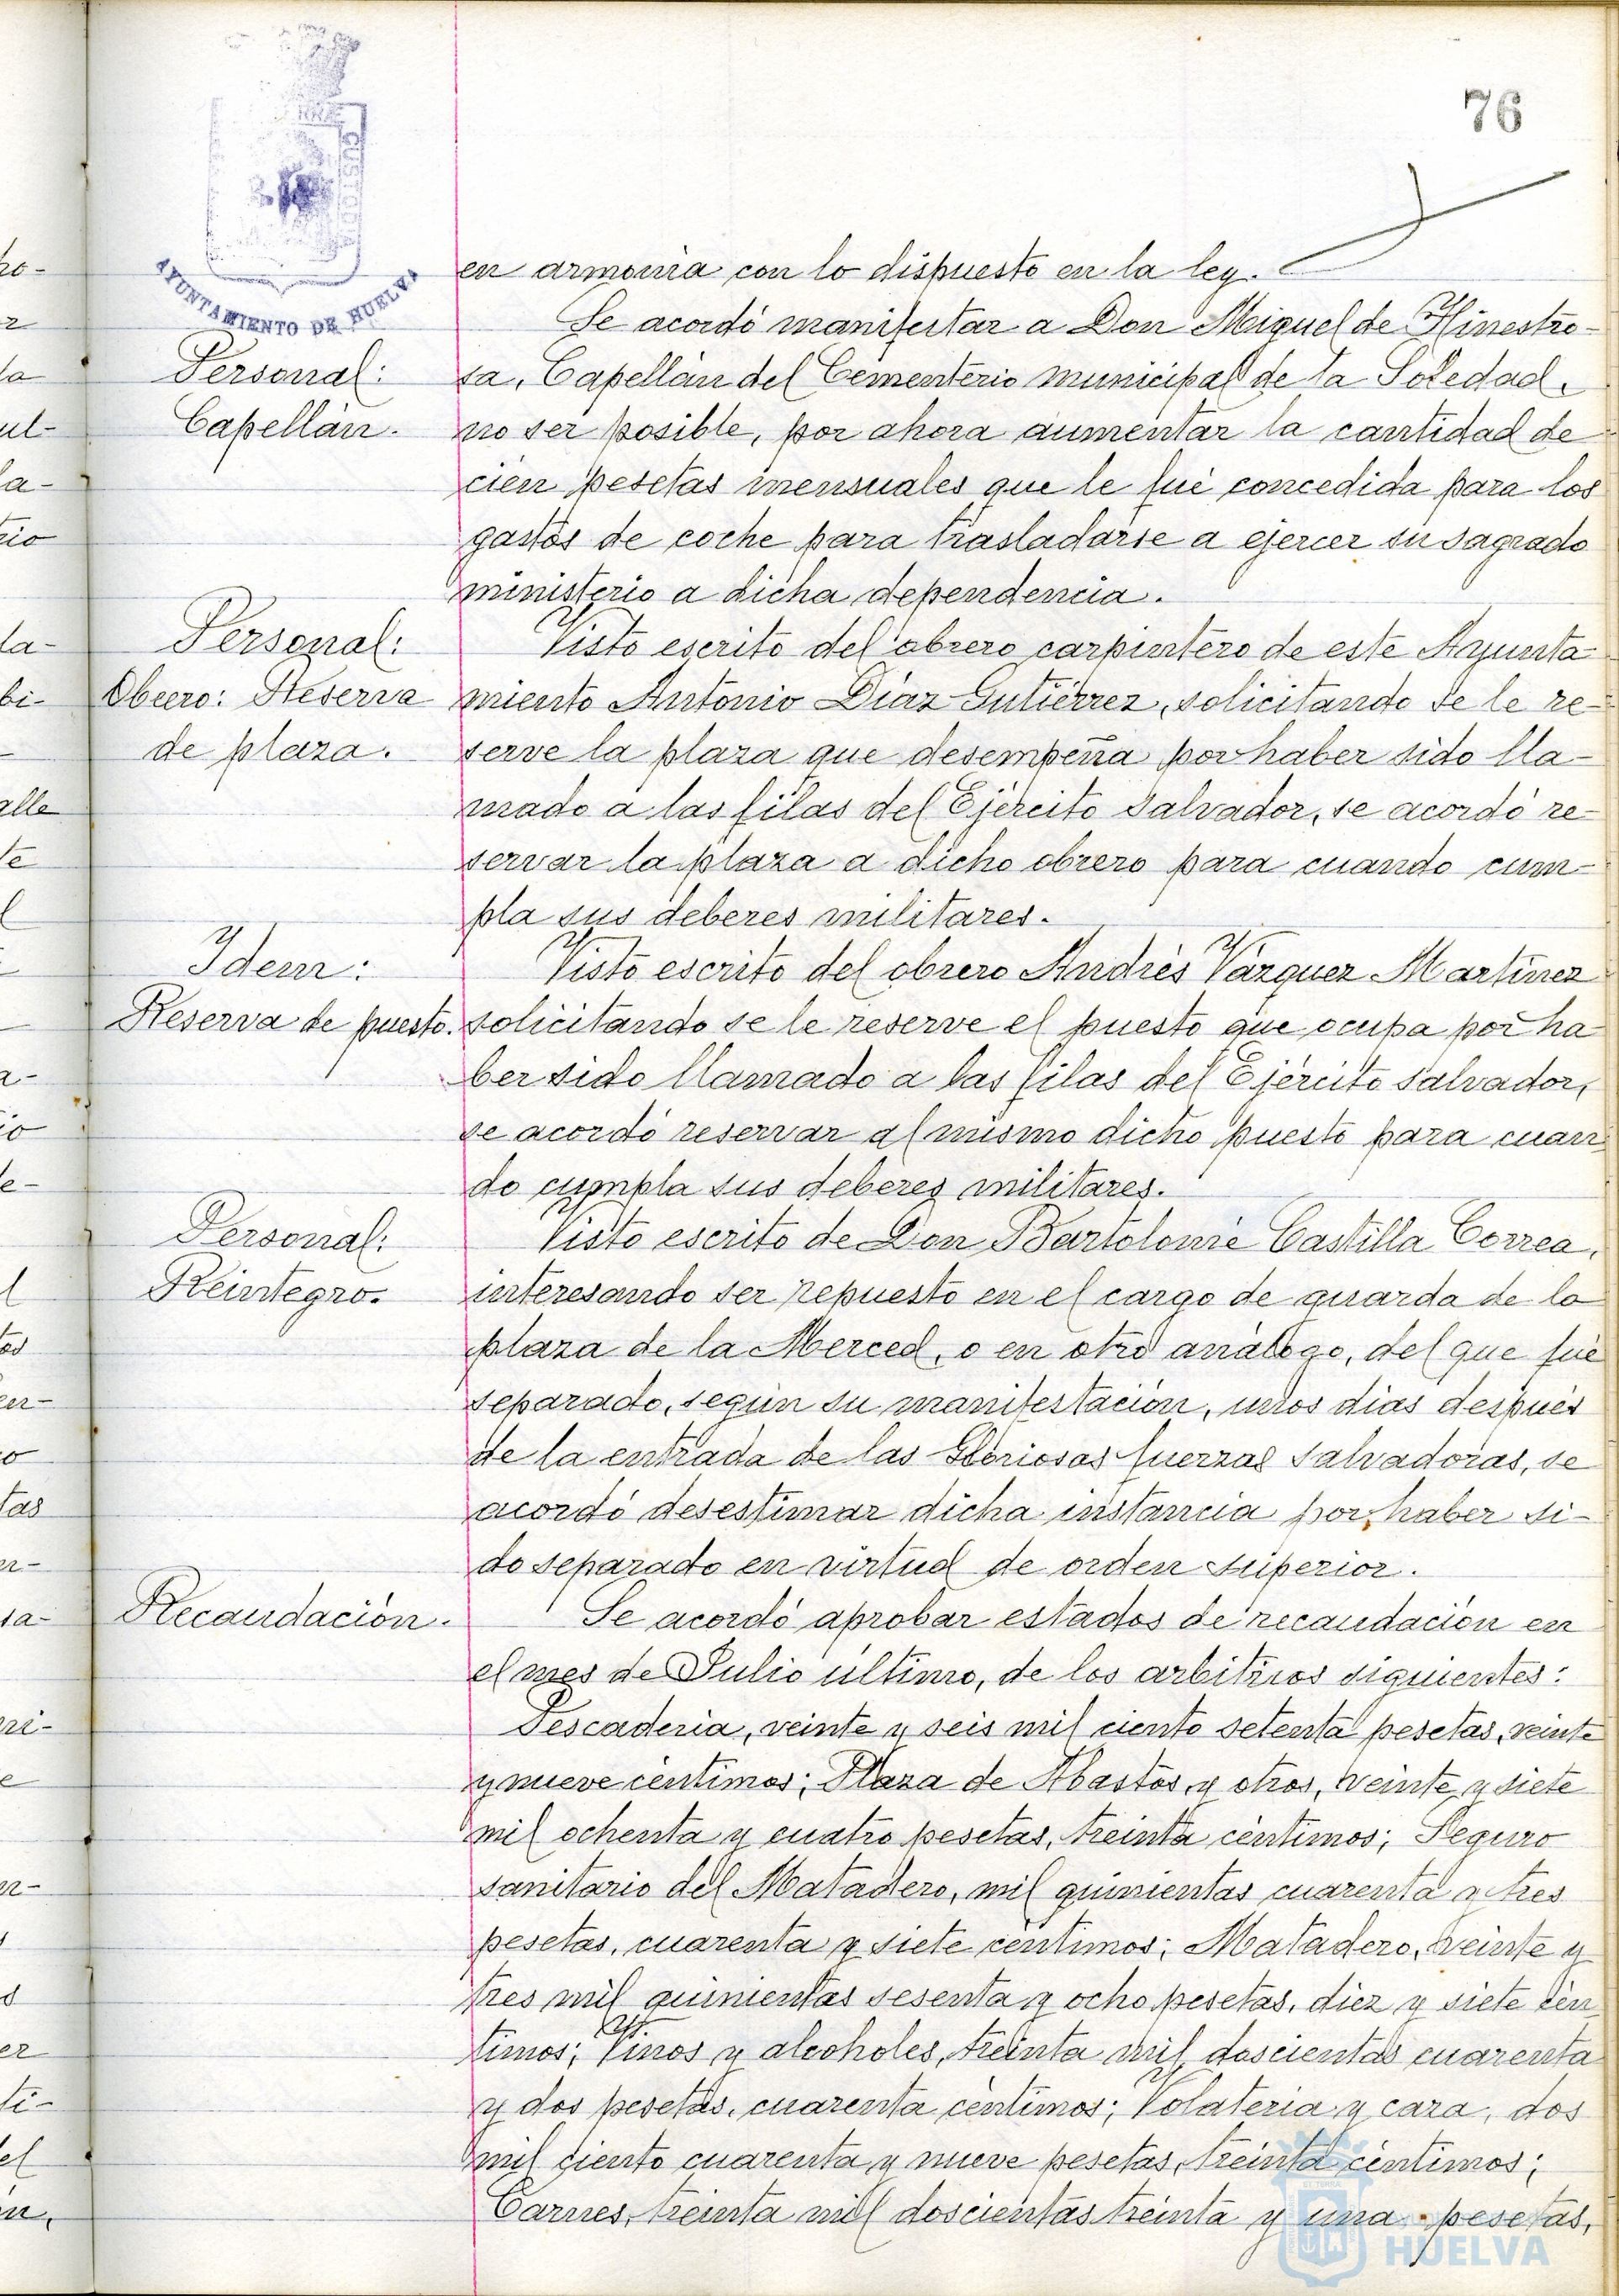 76
CUSTODIO
AYUNTAMIENTO DE HUELVA
en armonia con lo dispuesto en la ley.
Se acordó manifestar a Don Miguel de Hinestro-
Personal:
sa, Capellán del Cementerio municipal de la Soledad,
Capellán.
no ser posible, por ahora aumentar la cantidad de
cien pesetas mensuales que le fué concedida para los
gastos de coche para trasladarse a ejercer su sagrado
ministerio a dicha dependencia.
Personal:
Visto escrito del obrero carpintero de este Ayunta-
Obrero: Reserva
miento Antonio Díaz Gutiérrez, solicitando se le re-
de plaza.
serve la plaza que desempeña por haber sido lla-
mado a las filas del Ejército salvador, se acordó re-
servar la plaza a dicho obrero para cuando cum-
pla sus deberes militares.
Idem:
Visto escrito del obrero Andrés Vázquez Martínez
Reserva de puesto.
solicitando se le reserve el puesto que ocupa por ha
ber sido llamado a las filas del Ejército salvador,
se acordó reservar al mismo dicho puesto para cuan
do cumpla sus deberes militares.
Personal:
Visto escrito de Don Bartolomé Castilla Correa,
Reintegro.
interesando ser repuesto en el cargo de guarda de la
plaza de la Merced, o en otro análogo, del que fué
separado, según su manifestación, unos dias después
de la entrada de las Gloriosas fuerzas salvadoras, se
acordó desestimar dicha instancia por haber si-
do separado en virtud de orden superior.
Recaudación.
Se acordó aprobar estados de recaudación en
el mes de Julio último, de los arbitrios siguientes:
Pescaderia, veinte y seis mil ciento setenta pesetas, veinte
y nueve céntimos; Plaza de Abastos y otros, veinte y siete
mil ochenta y cuatro pesetas, treinta céntimos; Seguro
sanitario del Matadero, mil quinientas cuarenta y tres
pesetas, cuarenta y siete centimos; Matadero, veinte y
tres mil quinientas sesenta y ocho pesetas, diez y siete cén
timos; Vinos y alcoholes, treinta mil doscientas cuarenta
y dos pesetas, cuarenta céntimos; Volateria y caza, dos
mil ciento cuarenta y nueve pesetas, treinta céntimos;
Carnes, treinta mil doscientas treinta y una pesetas,
HUELVA